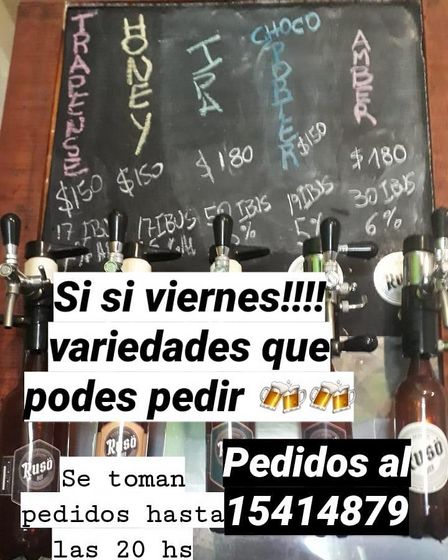 TRAPENSE
HONEY
IPA
CHOCO
PORTER
AMBER
$150
$150
$180
$150
$180
17 IBUS
17 IBUS
50 IBUS
19 IBUS
30 IBUS
5%
6%
Si si viernes!!!!
variedades que
podes pedir 🍻🍻
Pedidos al
15414879
Se toman
pedidos hasta
las 20 hs
Rusó
Rusó
RUSÓ